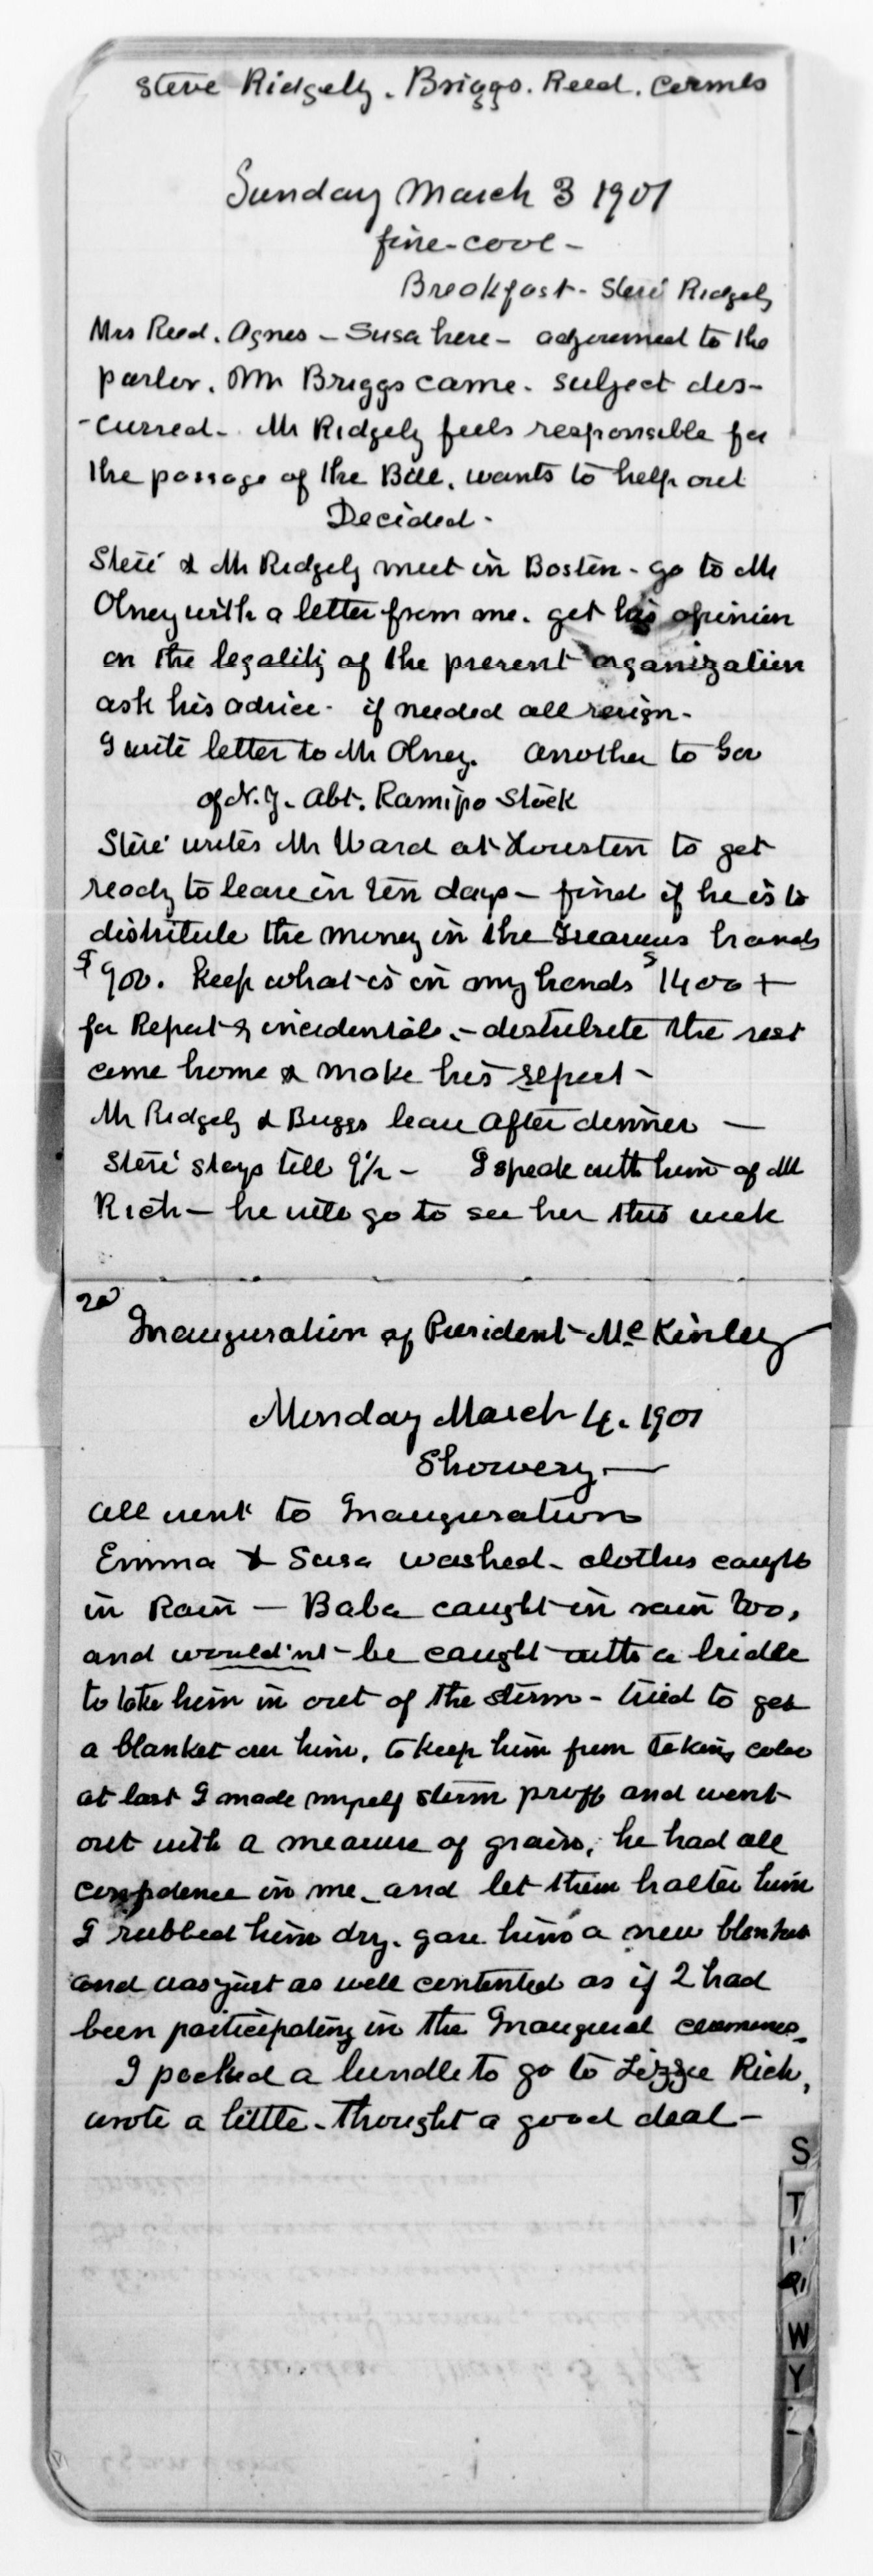 Steve Ridgely. Briggs. Reed.
Sunday March 3 1901
fine - cool -
Breakfast - Steve Ridgely
Mrs Reed. Agnes - Susa here - adjourned to the
parlor. Mr Briggs came. subject dis-
-cussed - Mr Ridgely feels responsible for
the passage of the Bill. wants to help out
Decided -
Steve & Mr Ridgely meet in Boston - go to Mr
Olney with a letter from me. get his opinion
on the legality of the present organization
ask his advice - if needed all resign -
I write letter to Mr Olney. another to Gov
of N.J. abt. Ramipo Stock
Steve writes Mr Ward at Houston to get
ready to leave in ten days - find if he is to
distribute the money in the Treasurers hands
$900. Keep what is in my hands $1400 +
for Report & incidentals - distribute the rest
come home & make his report -
Mr Ridgely & Briggs leave after dinner -
Steve stays till 9½ - I speak with him of M
Rich - he will go to see her this week
Inauguration of President McKinley
Monday March 4. 1901
Showery -
all went to Inauguration
Emma & Susa washed - clothes caught
in Rain - Baba caught in rain too,
and would'nt - be caught with a bridle
to take him in out of the storm - tried to get
a blanket over him, to keep him from taking cold
at last I made myself storm proff and went
out with a measure of grain, he had all
confidence in me - and let them halter him
I rubbed him dry. gave him a new blanket
and was just as well contented as if I had
been participating in the Inaugural
I packed a bundle to go to Lizzie Rich,
wrote a little - thought a good deal -
S
T
W
Y